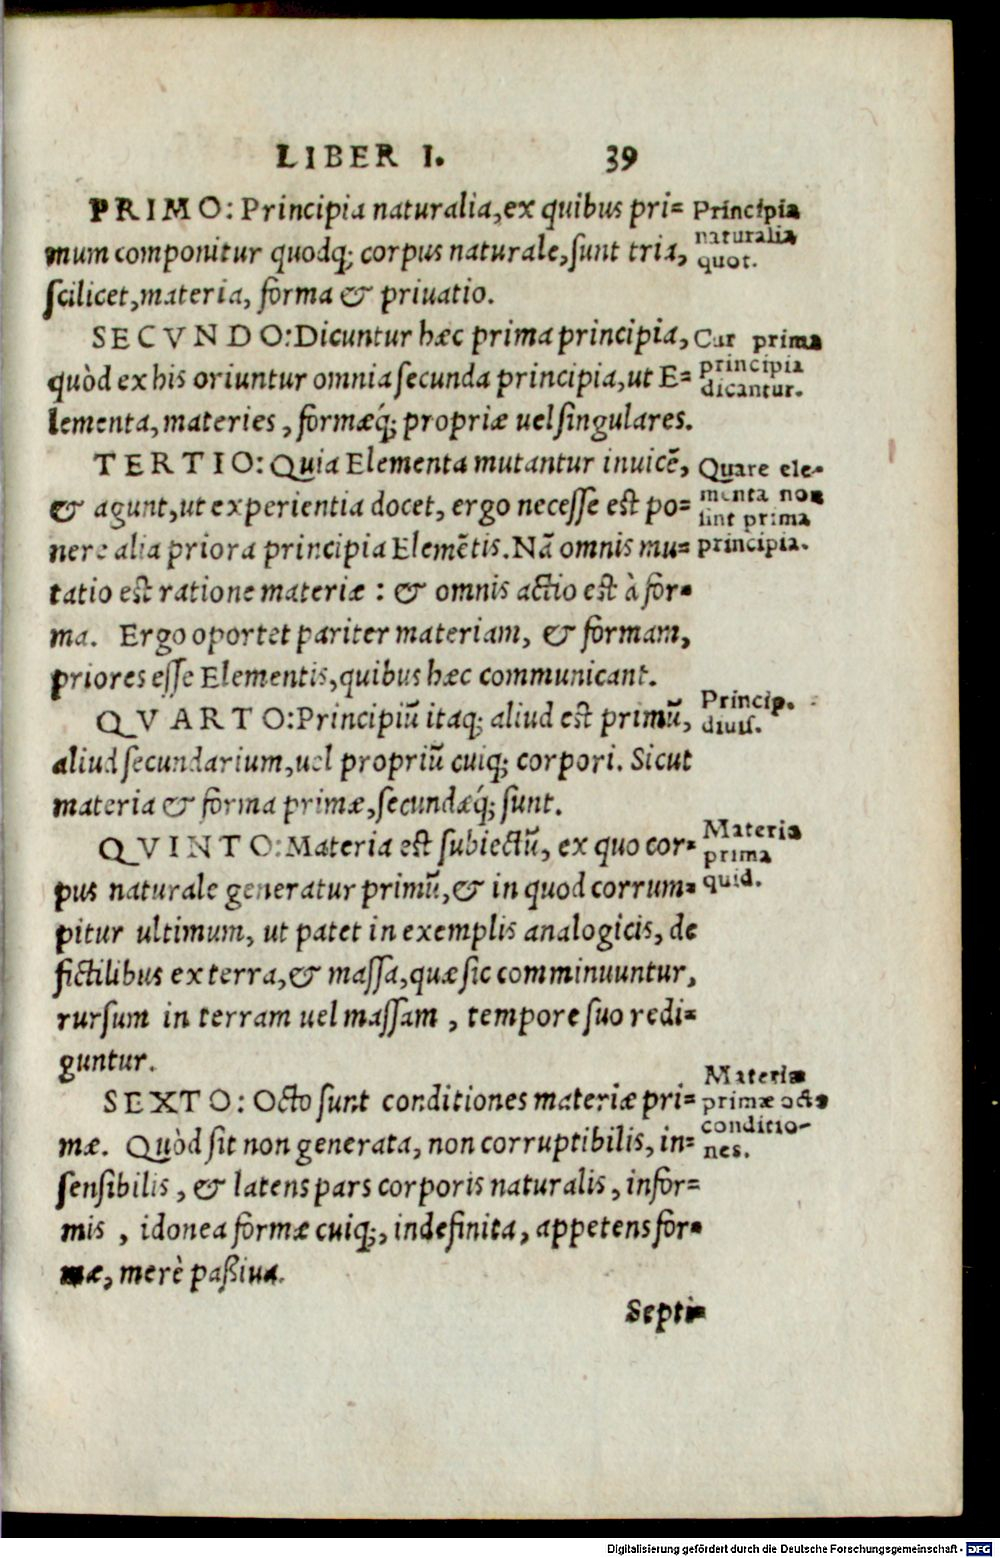 LIBER I. 39
PRIMO: Principia naturalia, ex quibus pri=
mum componitur quodq; corpus naturale, sunt tria,
scilicet, materia, forma & priuatio.
Principia
naturalia
quot.
SECVNDO: Dicuntur hæc prima principia,
quòd ex his oriuntur omnia secunda principia, ut E=
lementa, materies, formæq́; propriæ uel singulares.
Cur prima
principia
dicantur.
TERTIO: Quia Elementa mutantur inuicē,
& agunt, ut experientia docet, ergo necesse est po=
nere alia priora principia Elemētis. Nā omnis mu=
tatio est ratione materiæ: & omnis actio est à for=
ma. Ergo oportet pariter materiam, & formam,
priores esse Elementis, quibus hæc communicant.
Quare ele=
menta non
sint prima
principia.
QVARTO: Principiū itaq; aliud est primū,
aliud secundarium, uel propriū cuiq; corpori. Sicut
materia & forma primæ, secundæq́; sunt.
Princip.
diuis.
QVINTO: Materia est subiectū, ex quo cor=
pus naturale generatur primū, & in quod corrum=
pitur ultimum, ut patet in exemplis analogicis, de
fictilibus ex terra, & massa, quæ sic comminuuntur,
rursum in terram uel massam, tempore suo redi=
guntur.
Materia
prima
quid.
SEXTO: Octo sunt conditiones materiæ pri=
mæ. Quòd sit non generata, non corruptibilis, in=
sensibilis, & latens pars corporis naturalis, infor=
mis, idonea formæ cuiq;, indefinita, appetens for=
mæ, merè paßiua.
Materiæ
primæ octo
conditio-
nes.
Septi=
Digitalisierung gefördert durch die Deutsche Forschungsgemeinschaft - DFG